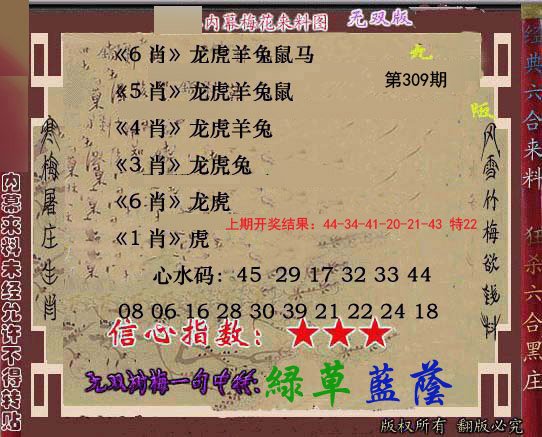 内幕梅花来料图 无双版
《6肖》龙虎羊兔鼠马
第309期
《5肖》龙虎羊兔鼠
《4肖》龙虎羊兔
《3肖》龙虎兔
《6肖》龙虎
上期开奖结果：44-34-41-20-21-43 特22
《1肖》虎
心水码：45 29 17 32 33 44
08 06 16 28 30 39 21 22 24 18
信心指数：★★★
无双寒梅一句中特：緑草藍蔭
版权所有 翻版必究
寒梅屠庄生肖
风雪竹梅欲钱料
内幕来料未经允许不得转贴
经典六合来料
狂杀六合黑庄